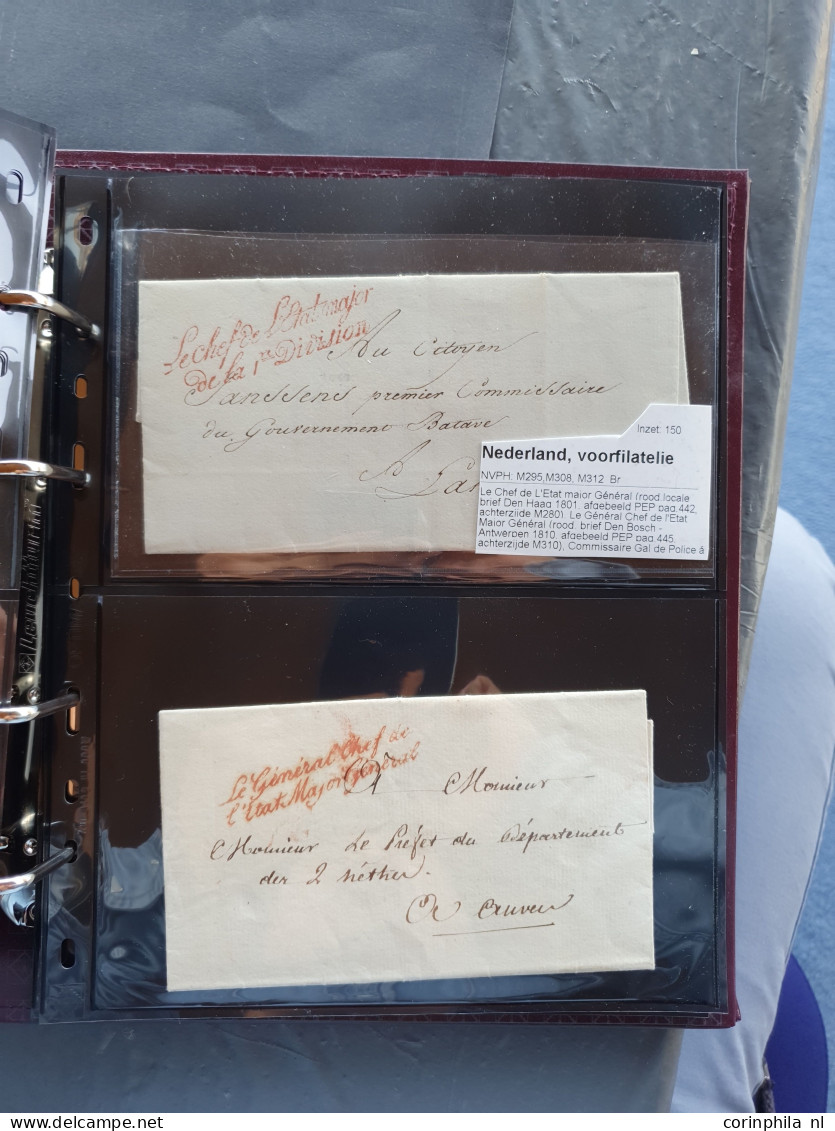 Le Chef de L'Etatmajor
de la 1re Division
Au Citoyen
Janssens premier Commissaire
du Gouvernement Batave
A
Inzet: 150
Nederland, voorfilatelie
NVPH: M295,M308, M312 Br
Le Chef de L'Etat major Général (rood,locale
brief Den Haag 1801, afgebeeld PEP pag.442,
achterzijde M280), Le Général Chef de l'Etat
Major Général (rood, brief Den Bosch -
Antwerpen 1810, afgebeeld PEP pag.445,
achterzijde M310), Commissaire Gal de Police á
Le Général Chef de
l'Etat Major Général
A Monsieur
Monsieur Le Préfet du Département
des 2 néthes.
A anvers
corinphila nl